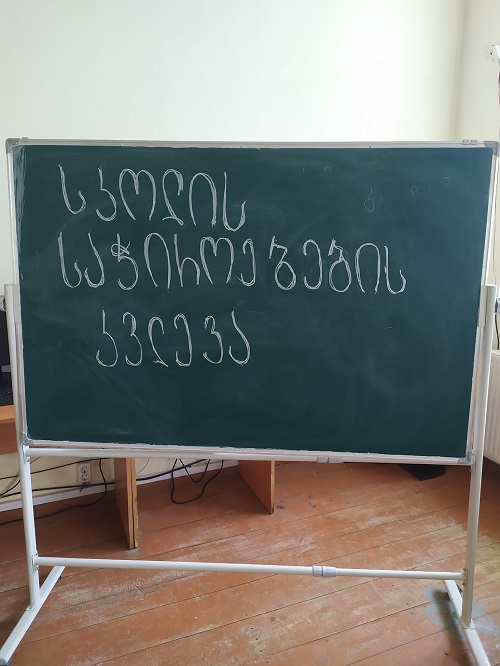 სკოლის
საჭიროებების
კვლევა